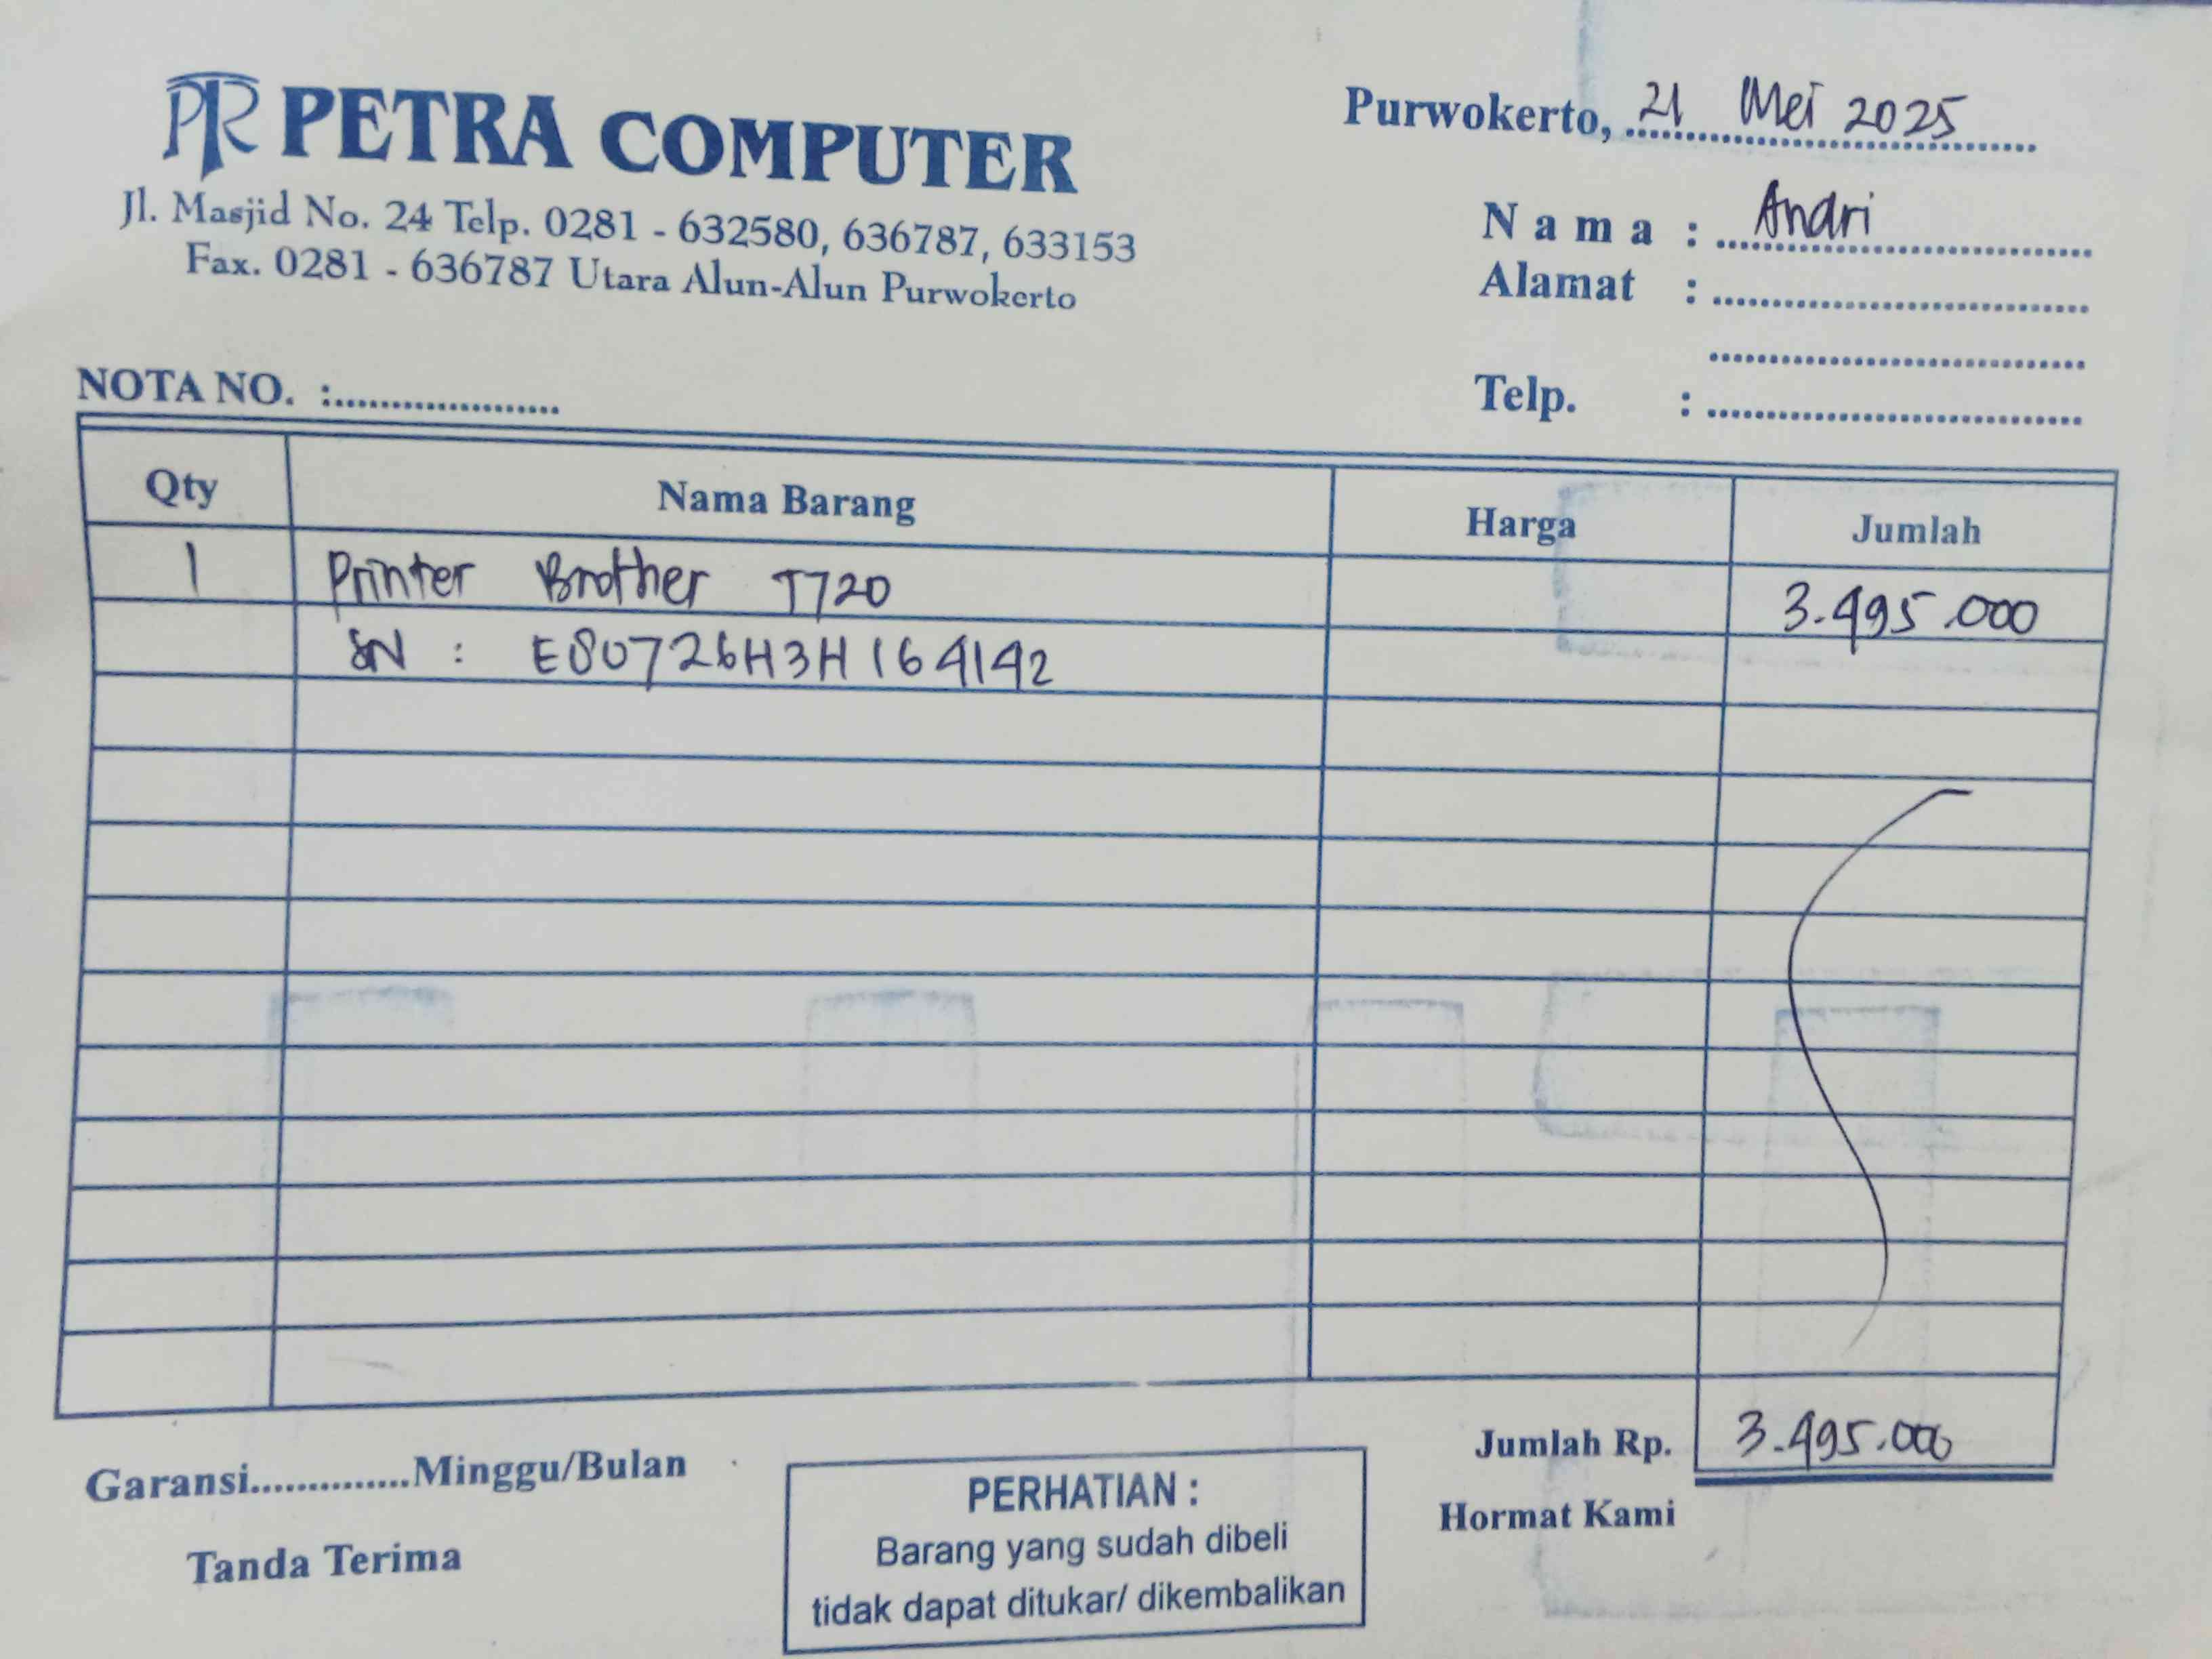 PR PETRA COMPUTER
Jl. Masjid No. 24 Telp. 0281 - 632580, 636787, 633153
Fax. 0281 - 636787 Utara Alun-Alun Purwokerto
Purwokerto, 21 Mei 2025
Nama : Andri
Alamat :
Telp. :
NOTA NO. :
Qty Nama Barang Harga Jumlah
1 Printer Brother T720 3.495.000
SN : E80726H3H164142
Jumlah Rp. 3.495.000
Garansi..............Minggu/Bulan
Hormat Kami
Tanda Terima
PERHATIAN :
Barang yang sudah dibeli
tidak dapat ditukar/ dikembalikan